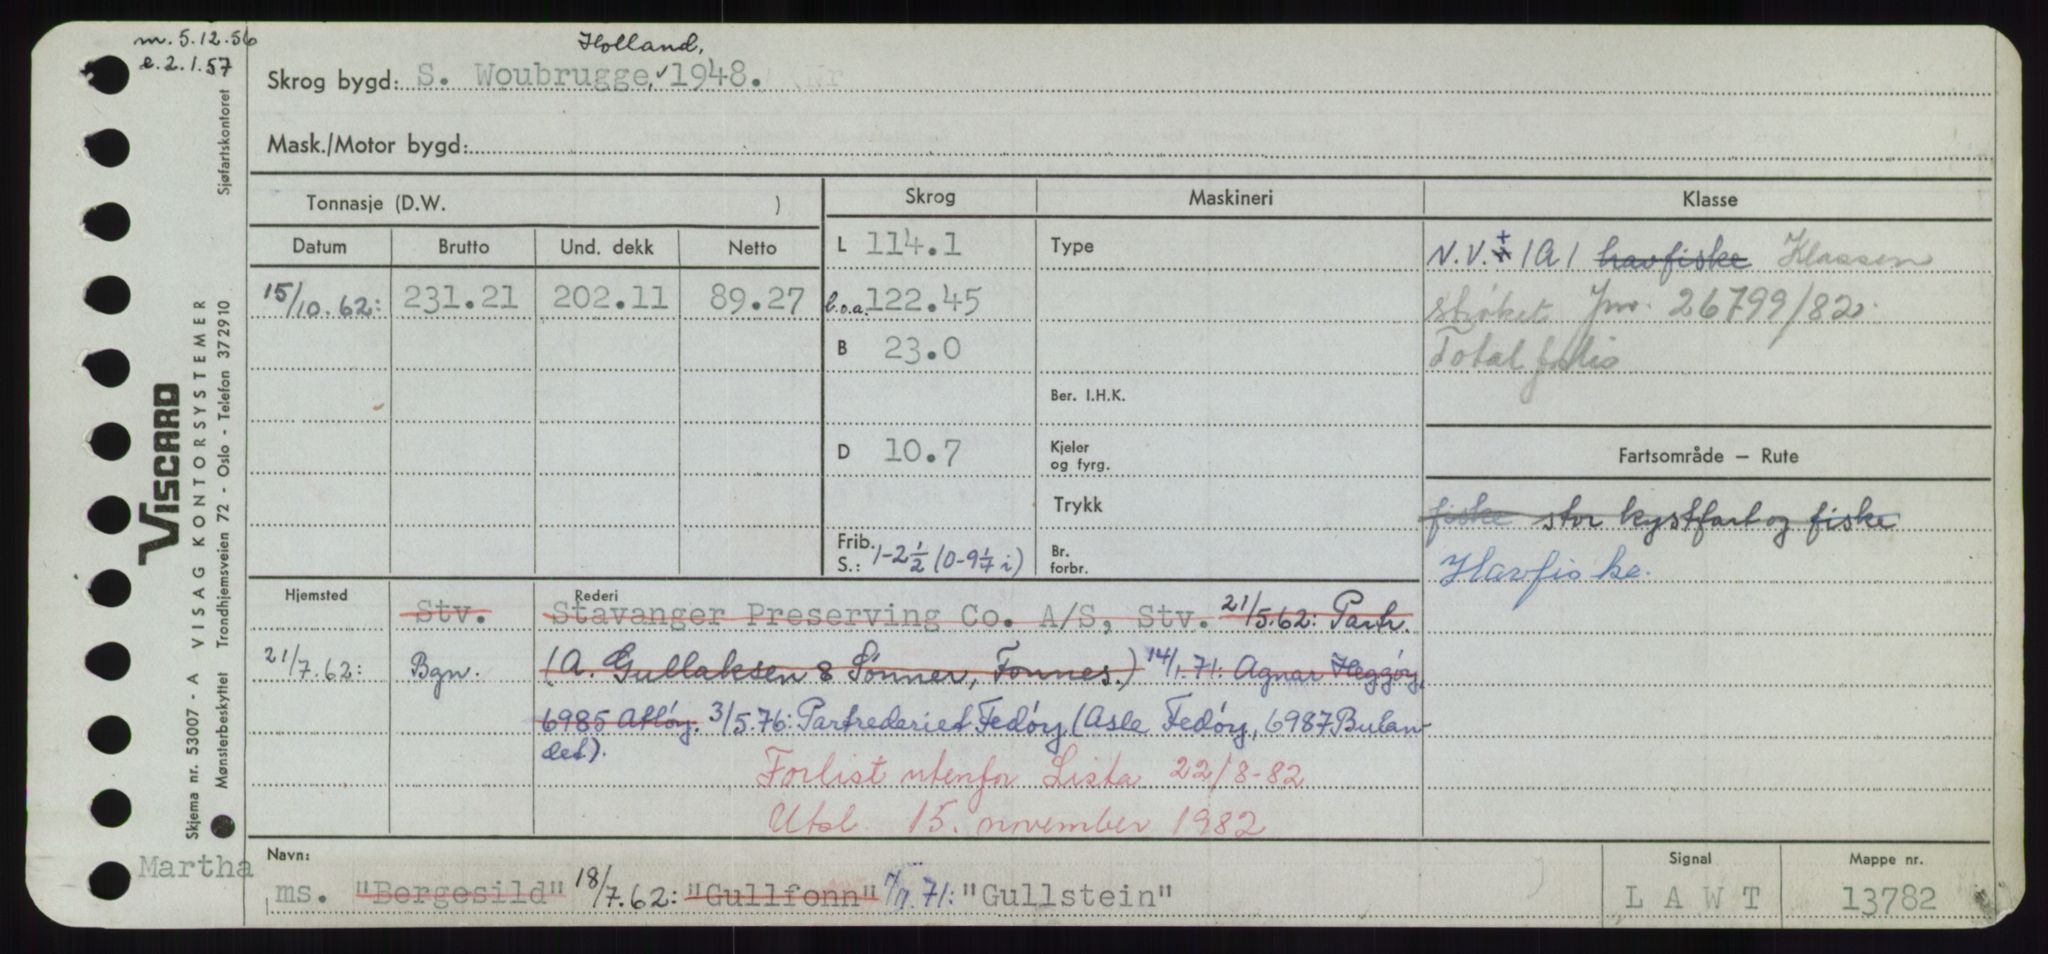 m. 5.12.56
e. 2.1.57
Holland,
Skrog bygd: S. Woubrugge, 1948.
Mask./Motor bygd:
Sjøfartskontoret
VISCARD
VISAG KONTORSYSTEMER
Skjema nr. 53007 - A
Mønsterbeskyttet Trondhjemsveien 72 - Oslo - Telefon 37 29 10
Tonnasje (D.W. )
Skrog
Maskineri
Klasse
Datum Brutto Und. dekk Netto
15/10.62: 231.21 202.11 89.27
L 114.1
l.o.a. 122.45
B 23.0
D 10.7
Frib. S.: 1-2½ (0-9 1/7 i)
Type
Ber. I.H.K.
Kjeler og fyrg.
Trykk
Br. forbr.
N.V. + 1A1 havfiske Klassen
strøket Jnr. 26799/82
Total forlis
Fartsområde – Rute
fiske stor kystfart og fiske
Havfiske.
Hjemsted
Rederi
Stv. Stavanger Preserving Co. A/S, Stv. 21/5.62: Partr.
21/7.62: Bgn. (A. Gullaksen & Sønner, Fonnes.) 14/1.71: Agnar Heggøy,
6985 Atløy. 3/5.76: Partrederiet Fedøy (Asle Fedøy, 6987 Bulan-
det).
Forlist utenfor Lista 22/8-82
Utsl. 15. november 1982
Navn:
Martha
ms. "Borgesild" 18/7.62: "Gullfonn" 71: "Gullstein"
Signal
L A W T
Mappe nr.
13782